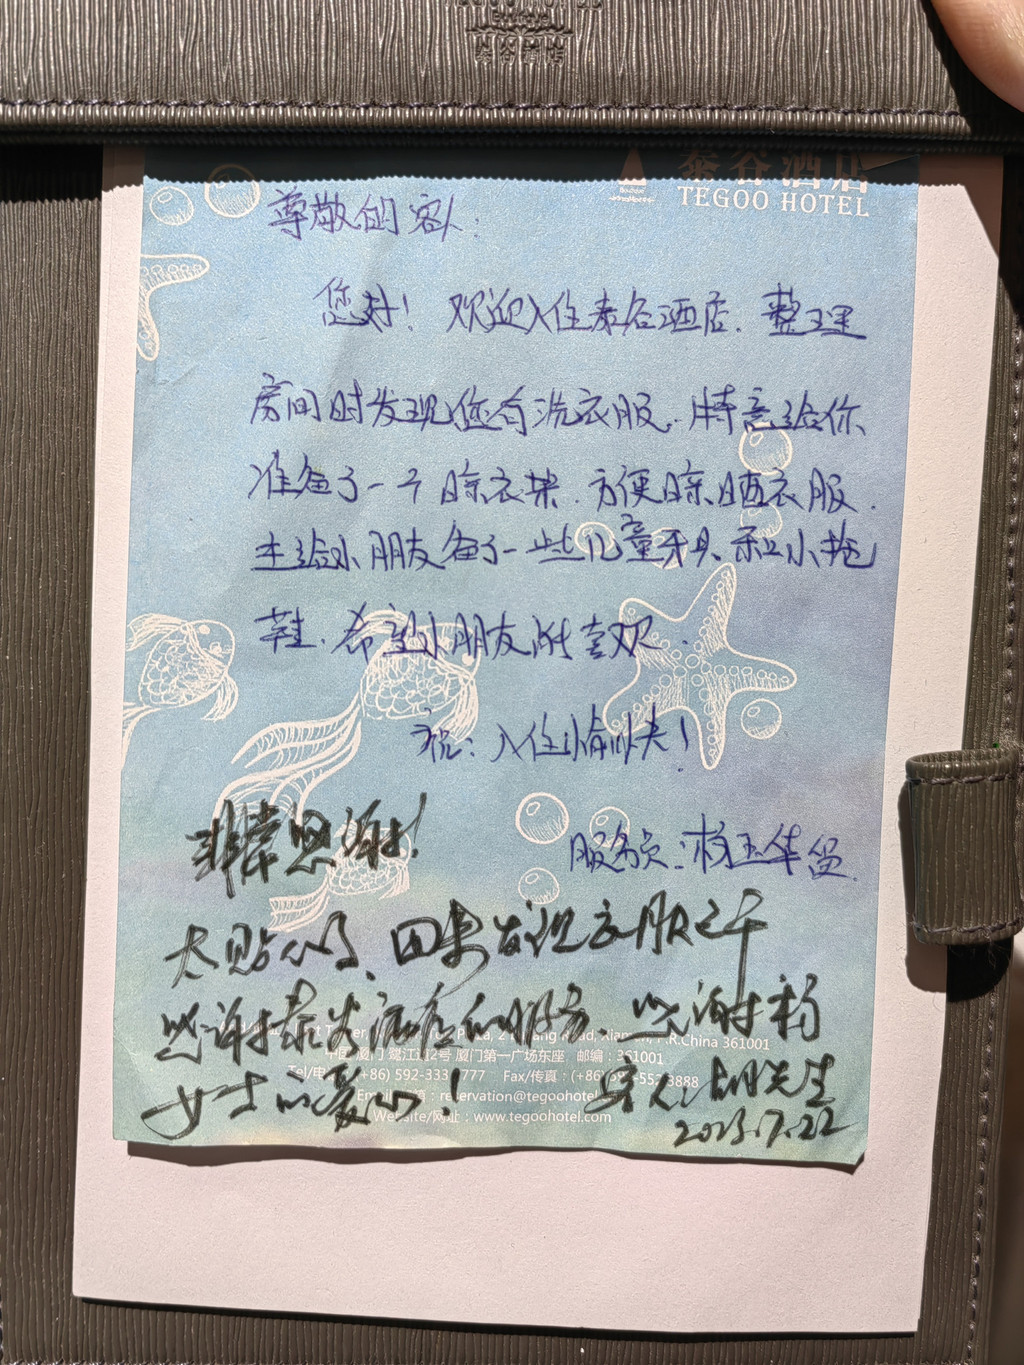 泰谷酒店
TEGOO HOTEL
尊敬的客人:
您好! 欢迎入住泰谷酒店. 整理
房间时发现您有洗衣服. 特意给你
准备了一个晾衣架. 方便晾晒衣服.
也给小朋友备了一些儿童牙具和小拖
鞋. 希望小朋友们喜欢.
祝: 入住愉快!
服务员: 杨玉华留
非常感谢!
太贴心了, 回来发现衣服已干
感谢泰谷酒店的服务 感谢杨
女士的爱心! 客人: 胡先生
2023.7.22
Road, P.R.China 361001
中国 厦门 鹭江道2号 厦门第一广场东座 邮编: 361001
Tel/电话: (+86) 592-333 777 Fax/传真: (+86) 8888
reservation@tegoohotel.com
Website/网址: www.tegoohotel.com